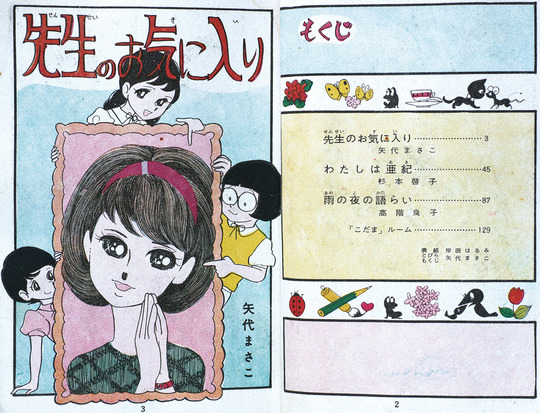 先生のお気に入り
せんせい
き
い
矢代まさこ
3
もくじ
せんせい
き
い
先生のお気に入り……………… 3
矢代まさこ
あき
わたしは亜紀……………… 45
杉本啓子
あめ
よ
かた
雨の夜の語らい……………… 87
高階良子
「こだま」ルーム……………… 129
表紙 岸田はるみ
とびら
もくじ 矢代まさこ
2